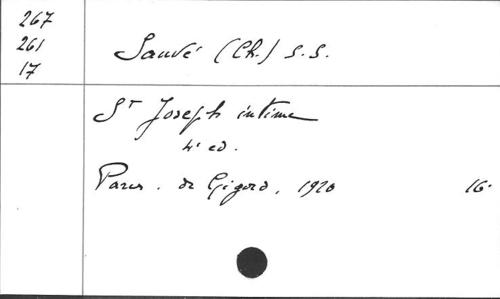 267
261
17
Sauvé (Ch.) S.S.
St Joseph intime
4e ed.
Paris. de Gigord, 1920 16°